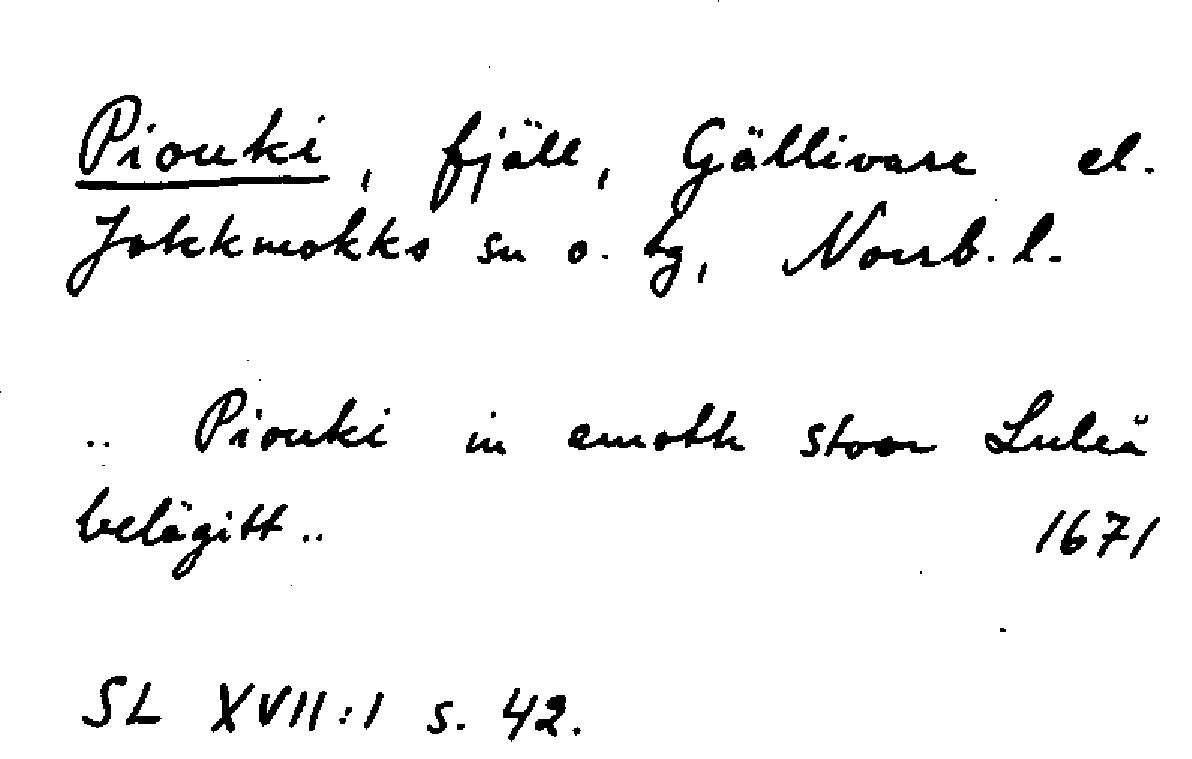 Piouki, fjäll, Gällivare el.
Jokkmokks sn o. tg, Norrb. l.
.. Piouki in emoth stoor Luleå
belägitt ..
1671
SL XVII:1 s. 42.